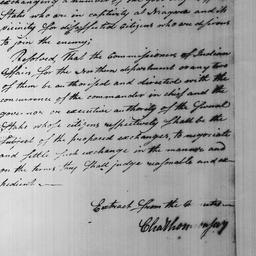 exchanging a number of the
State who are in captivity at Niagara and its
vicinity for disaffected Citizens who are desirous
to join the enemy;
Resolved That the Commissioners of Indian
Affairs for the Northern department or any two
of them be authorised and directed with the
concurrence of the commander in chief and the
governor or executive authority of the several
States whose citizens respectively shall be the
Subject of the proposed exchanges to negotiate
and settle such exchange in the manner and
on the terms they shall judge reasonable and ex
pedient —
Extract from the minutes
Cha Thomson secy